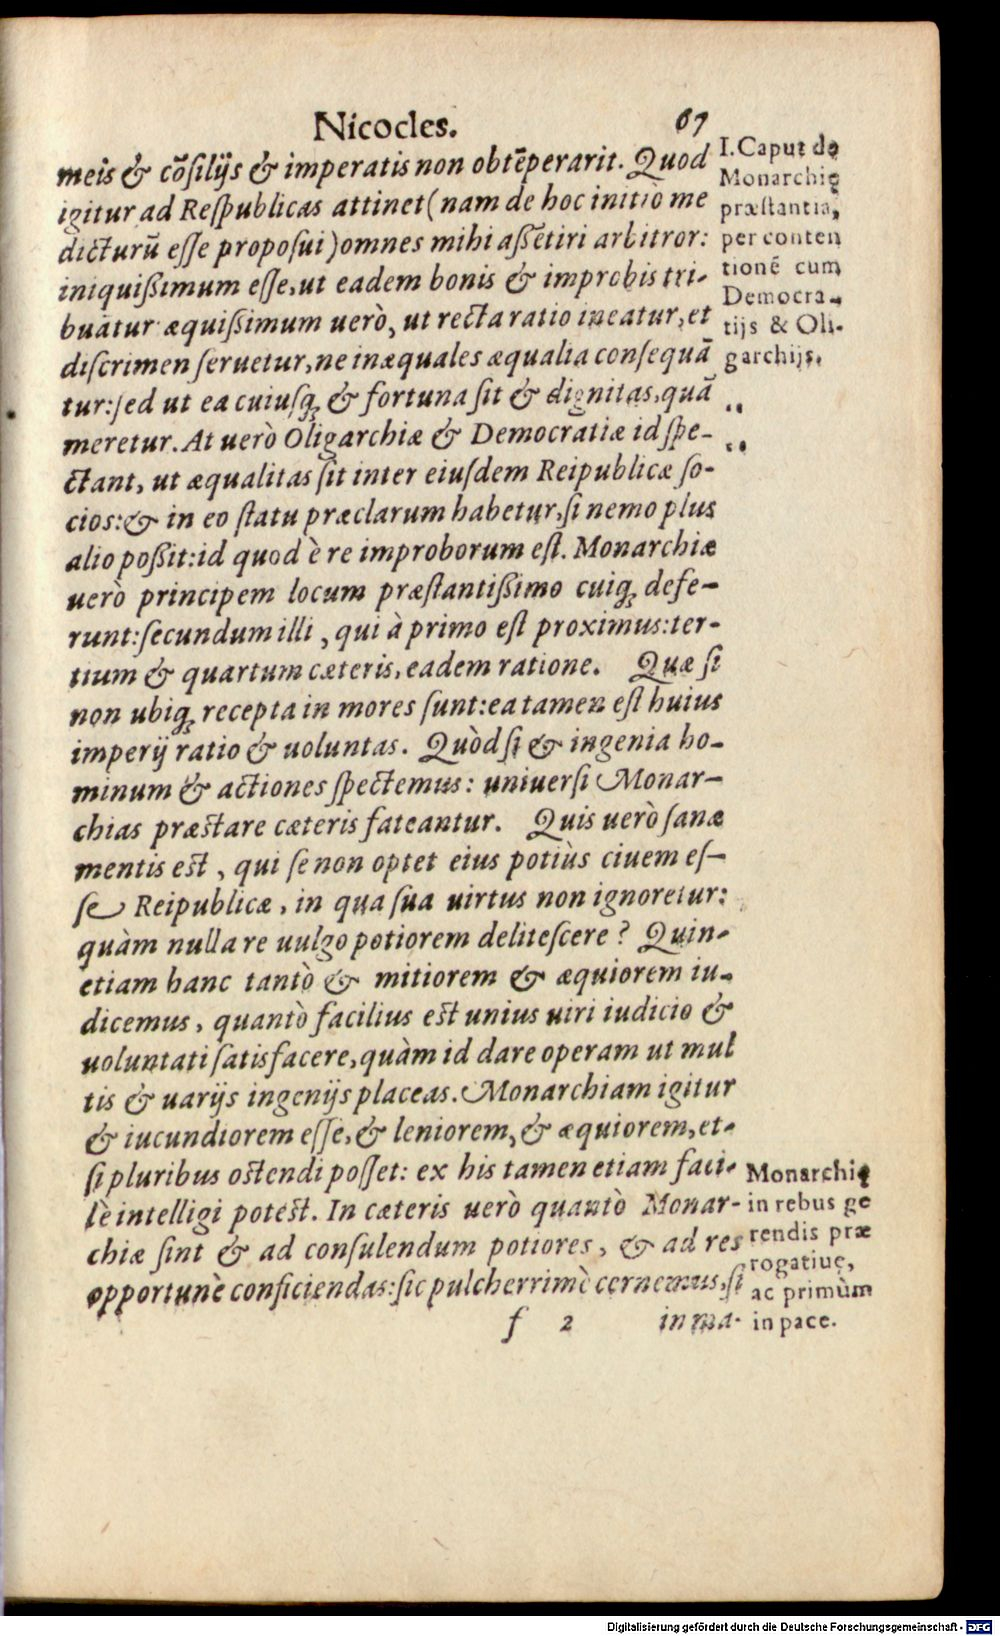 Nicocles. 67
meis & cõſilijs & imperatis non obtẽperarit. Quod
igitur ad Reſpublicas attinet (nam de hoc initiò me
dicturũ eſſe propoſui) omnes mihi aſſẽtiri arbitror:
iniquißimum eſſe, ut eadem bonis & improbis tri-
buātur æquißimum uerò, ut recta ratio ineatur, et
diſcrimen ſeruetur, ne inæquales æqualia conſequã
tur: ſed ut ea cuiuſq; & fortuna ſit & dignitas, quã
meretur. At uerò Oligarchiæ & Democratiæ id ſpe-
ctant, ut æqualitas ſit inter eiuſdem Reipublicæ ſo-
cios: & in eo ſtatu præclarum habetur, ſi nemo plus
alio poßit: id quod è re improborum eſt. Monarchiæ
uerò principem locum præſtantißimo cuiq; defe-
runt: ſecundum illi, qui à primo eſt proximus: ter-
tium & quartum cæteris, eadem ratione. Quæ ſi
non ubiq; recepta in mores ſunt: ea tamen eſt huius
imperij ratio & uoluntas. Quòd ſi & ingenia ho-
minum & actiones ſpectemus: uniuerſi Monar-
chias præſtare cæteris fateantur. Quis uerò ſanæ
mentis eſt, qui ſe non optet eius potiùs ciuem eſ-
ſe Reipublicæ, in qua ſua uirtus non ignoretur:
quàm nulla re uulgo potiorem deliteſcere? Quin-
etiam hanc tantò & mitiorem & æquiorem iu-
dicemus, quantò facilius eſt unius uiri iudicio &
uoluntati ſatisfacere, quàm id dare operam ut mul
tis & uarijs ingenijs placeas. Monarchiam igitur
& iucundiorem eſſe, & leniorem, & æquiorem, et-
ſi pluribus oſtendi poſſet: ex his tamen etiam faci-
lè intelligi poteſt. In cæteris uerò quantò Monar-
chiæ ſint & ad conſulendum potiores, & ad res
opportunè conficiendas: ſic pulcherrimè cernemus, ſi
f 2 in ma-
I. Caput de
Monarchię
præſtantia,
per conten
tionẽ cum
Democra-
tijs & Oli-
garchijs.
Monarchię
in rebus ge
rendis præ
rogatiuę,
ac primùm
in pace.
Digitalisierung gefördert durch die Deutsche Forschungsgemeinschaft - DFG